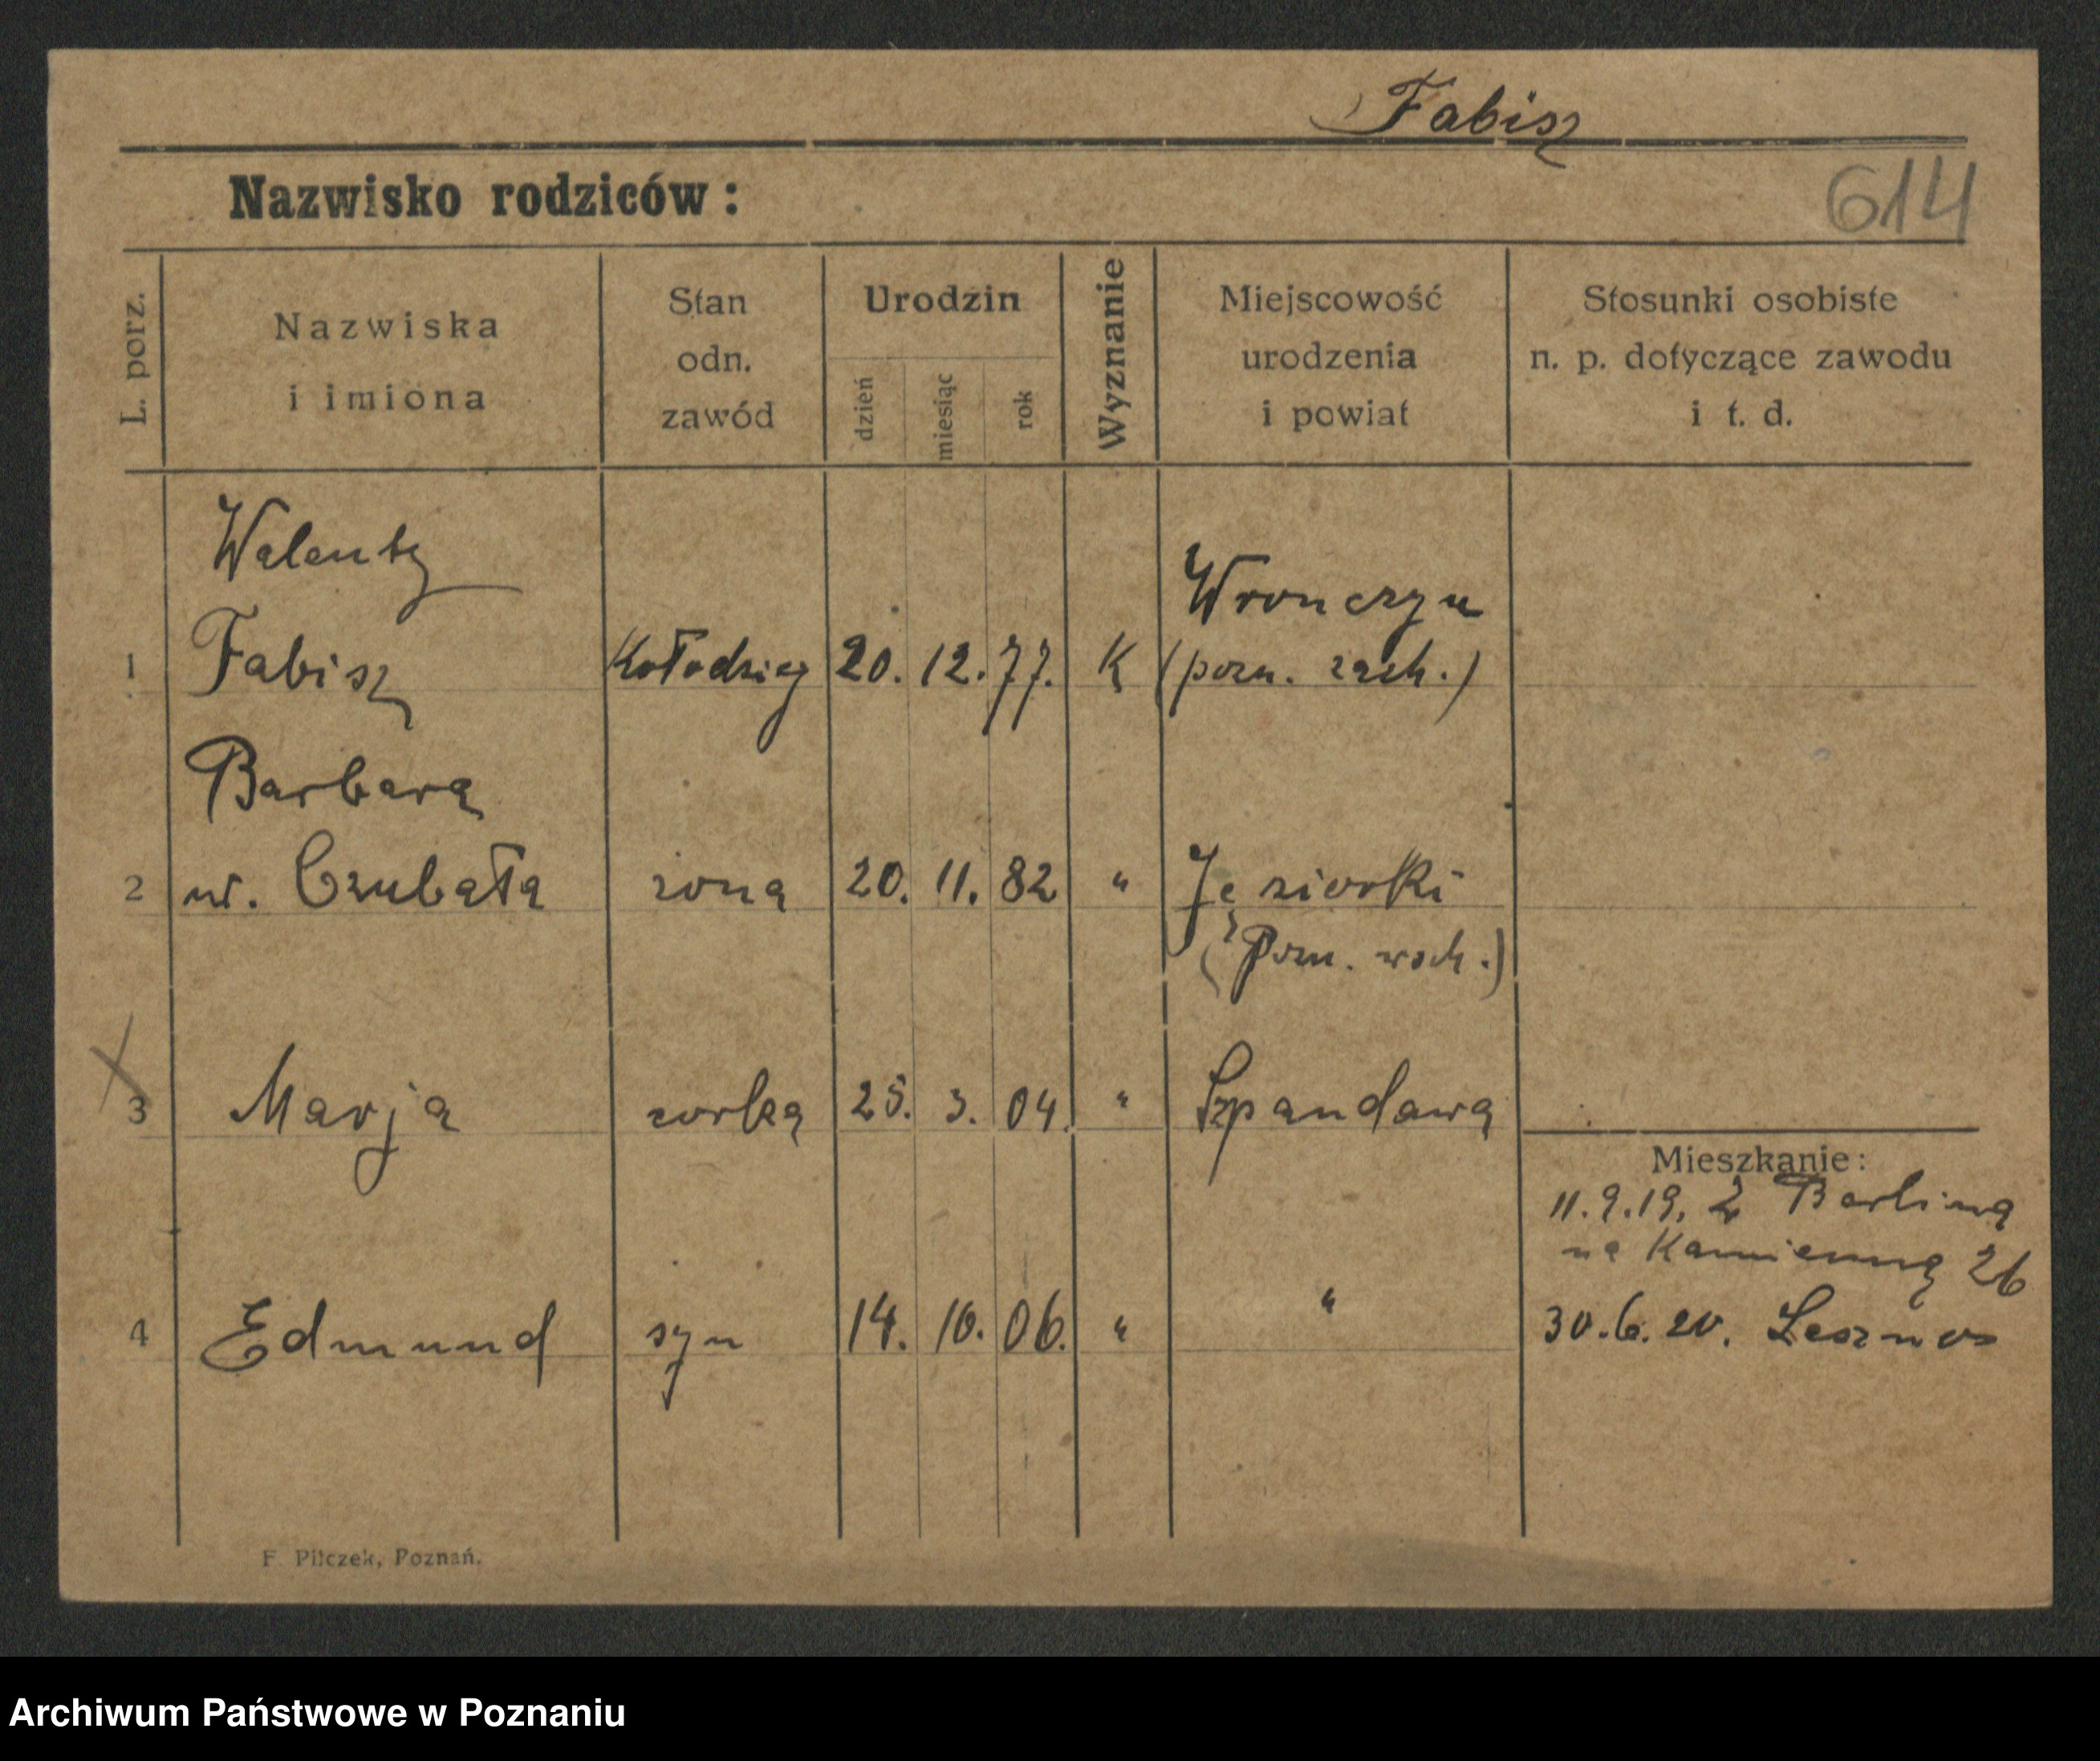 Fabisz
Nazwisko rodziców:
614
L. porz.
Nazwiska
i imiona
Stan
odn.
zawód
Urodzin
dzień
miesiąc
rok
Wyznanie
Miejscowość
urodzenia
i powiat
Stosunki osobiste
n. p. dotyczące zawodu
i t. d.
Walenty
1 Fabisz Kołodziej 20. 12. 77. K Wronczyn
(pozn. zach.)
Barbara
2 ur. Czubała zona 20. 11. 82 " Jeziorki
(Pozn. wsch.)
3 Marja corka 25. 3. 04. " Szpandawa
Mieszkanie:
11.9.19. Z Berlina
na Kamienną 26
4 Edmund syn 14. 10. 06. " "
30.6.20. Leszno
F. Pilczek, Poznań.
Archiwum Państwowe w Poznaniu